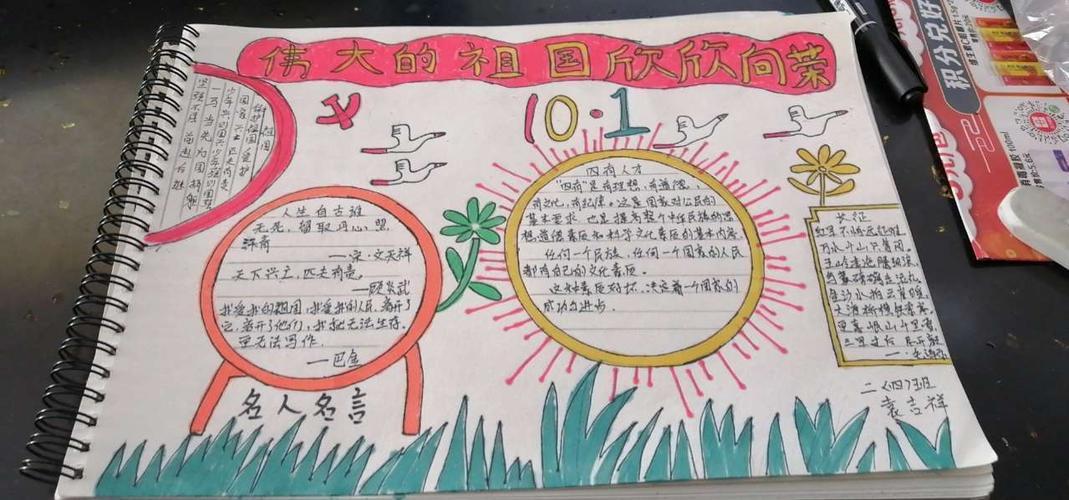 伟大的祖国欣欣向荣
10·1
人生自古谁
无死，留取丹心照
汗青
——宋·文天祥
天下兴亡，匹夫有责。
——顾炎武
我爱我的祖国，我爱我的人民，离开了
它，离开了他们，我就无法生存，
更无法写作。
——巴金
名人名言
四有人才
"四有"是有理想，有道德，
有文化，有纪律。这是国家对公民的
基本要求，也是提高整个中华民族的思
想道德素质和科学文化素质的基本内容
任何一个民族，任何一个国家的人民
都有自己的文化素质。
这种素质好坏，决定着一个国家的
成功与进步.
长征
红军不怕远征难
万水千山只等闲。
五岭逶迤腾细浪，
金沙水拍云崖暖，
更喜岷山千里雪，
三军过后尽开颜
二〈四〉班
袁吉祥
积分兑好
100ml